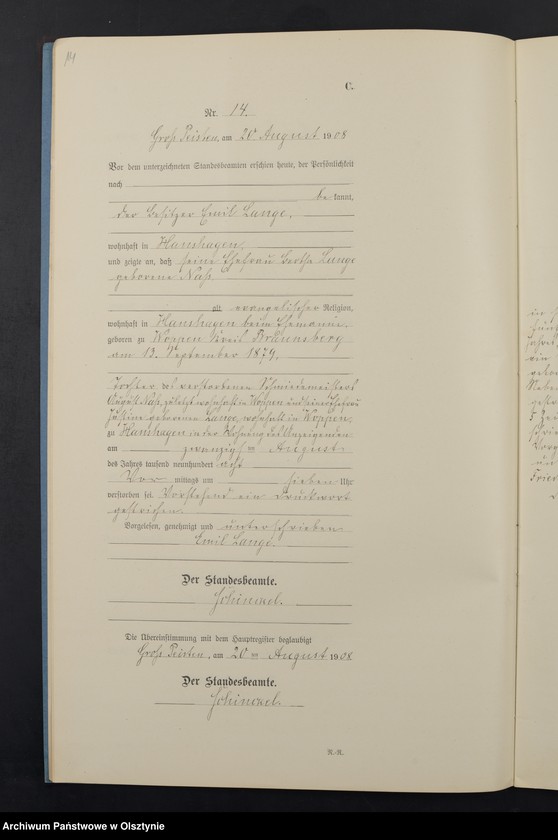 14
C.
Nr. 14.
Groß Peisten, am 20. August 1908
Vor dem unterzeichneten Standesbeamten erschien heute, der Persönlichkeit
nach
be kannt,
der Besitzer Emil Lange,
wohnhaft in Hanshagen,
und zeigte an, daß seine Ehefrau Bertha Lange
geborene Naß,
alt evangelischer Religion,
wohnhaft in Hanshagen beim Ehemanne,
geboren zu Woppen Kreis Braunsberg
am 13. September 1879,
Tochter des verstorbenen Schmiedemeisters
August Naß, zuletzt wohnhaft in Woppen und seiner Ehefrau
geborene Lange, wohnhaft in Woppen,
zu Hanshagen in der Wohnung des Anzeigenden
am zwanzigsten August
des Jahres tausend neunhundert acht
Vor mittags um sieben Uhr
verstorben sei. Vorstehend ein Druckwort
gestrichen.
Vorgelesen, genehmigt und unterschrieben
Emil Lange.
Der Standesbeamte.
Die Übereinstimmung mit dem Hauptregister beglaubigt
Groß Peisten, am 20ten August 1908
Der Standesbeamte.
R.-R.
Archiwum Państwowe w Olsztynie